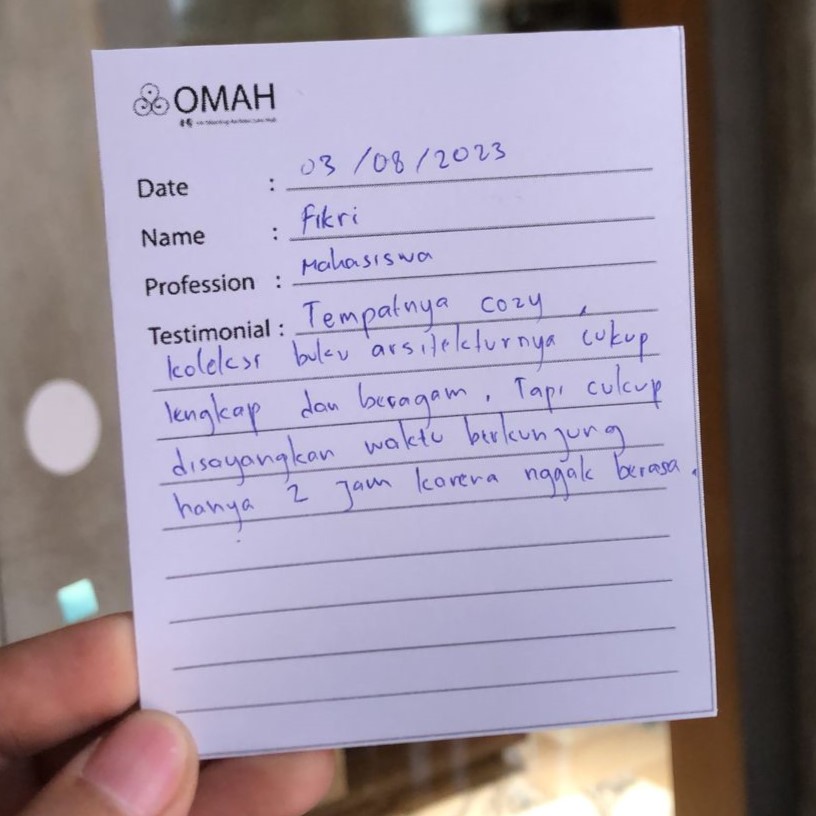 OMAH
Date : 03/08/2023
Name : Fikri
Profession : Mahasiswa
Testimonial : Tempatnya cozy,
koleksi buku arsitekturnya cukup
lengkap dan beragam. Tapi cukup
disayangkan waktu berkunjung
hanya 2 jam karena nggak berasa.